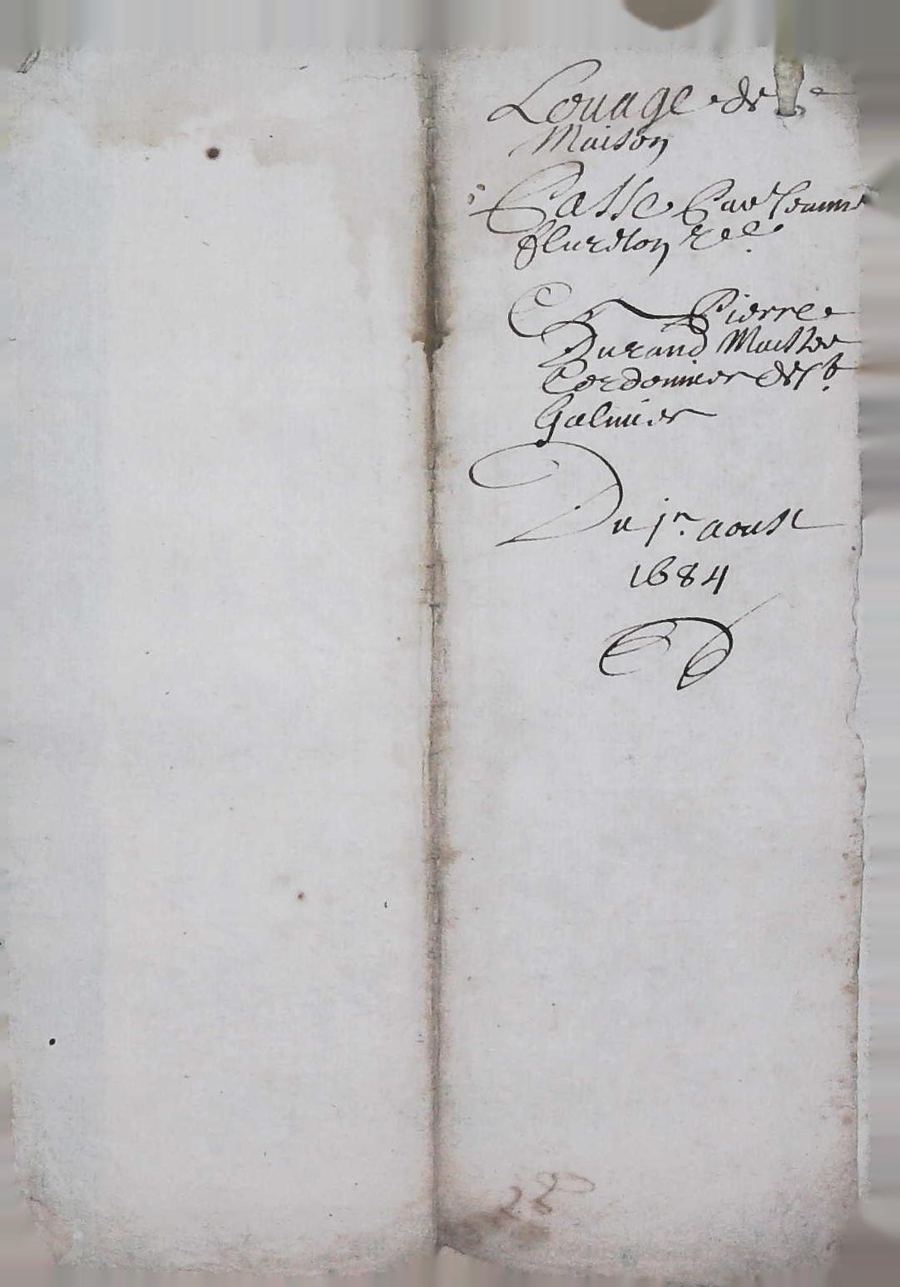 Louage de
Maison
Passé Par Jeanne
fleurdton
Et Pierre
Durand Maistre
Cordonnier de St
Galmier
Du 1r aoust
1684